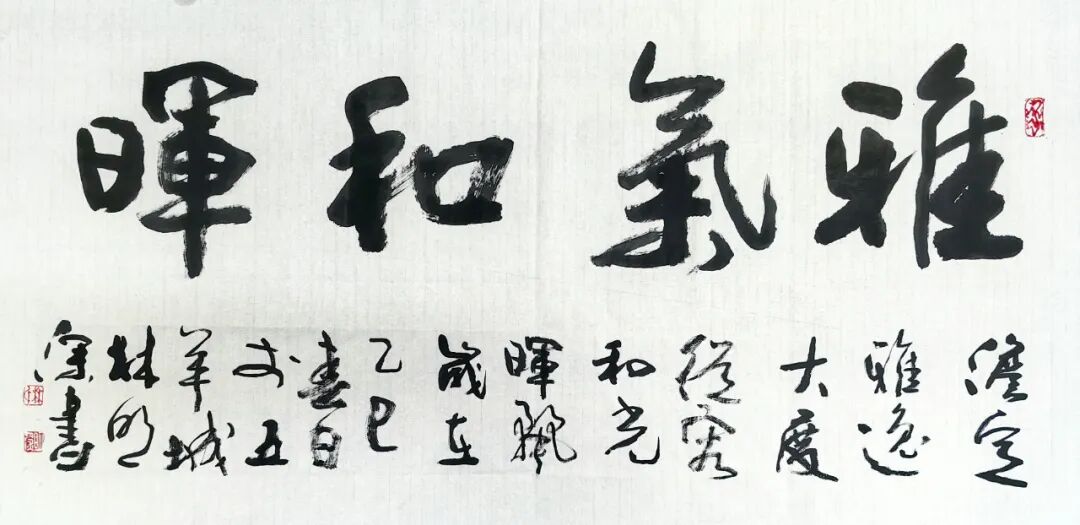 雅氣和暉
澹定
雅逸
大度
從容
和光
暉
歲在
乙巳
春日
於五
羊城
林明
深書